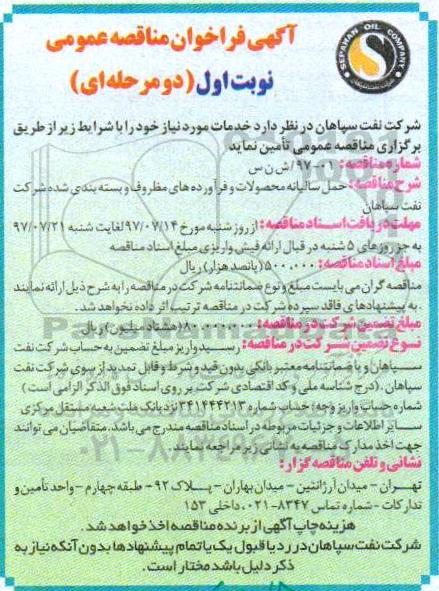 آگهی فراخوان مناقصه عمومی
نوبت اول (دو مرحله ای)
SEPAHAN OIL COMPANY
شرکت نفت سپاهان در نظر دارد خدمات مورد نیاز خود را با شرایط زیر از طریق
برگزاری مناقصه عمومی تأمین نماید
شماره مناقصه: ۰۱-۹۷/ش ن س
شرح مناقصه: حمل سالیانه محصولات و فرآورده های مظروف و بسته بندی شده شرکت
نفت سپاهان
مهلت دریافت اسناد مناقصه: از روز شنبه مورخ ۹۷/۰۷/۱۴ لغایت شنبه ۹۷/۰۷/۲۱
به جز روزهای ۵ شنبه در قبال ارائه فیش واریزی مبلغ اسناد مناقصه
مبلغ اسناد مناقصه: ۵۰۰,۰۰۰ (پانصد هزار) ریال
مناقصه گران می بایست مبلغ و نوع ضمانتنامه شرکت در مناقصه را به شرح ذیل ارائه نمایند
به پیشنهادهای فاقد سپرده شرکت در مناقصه ترتیب اثر داده نخواهد شد.
مبلغ تضمین شرکت در مناقصه: ۸۰,۰۰۰,۰۰۰ (هشتاد میلیون) ریال
نوع تضمین شرکت در مناقصه: رسید واریز مبلغ تضمین به حساب شرکت نفت
سپاهان و یا ضمانتنامه معتبر بانکی بدون قید و شرط و قابل تمدید از سوی شرکت نفت
سپاهان. (درج شناسه ملی و کد اقتصادی شرکت بر روی اسناد فوق الذکر الزامی است)
شماره حساب واریز وجه: حساب شماره ۳۴۱۴۴۴۲۱۳ نزد بانک ملت شعبه مستقل مرکزی
سایر اطلاعات و جزئیات مربوطه در اسناد مناقصه مندرج می باشد. متقاضیان می توانند
جهت اخذ مدارک مناقصه به نشانی زیر مراجعه نمایند.
نشانی و تلفن مناقصه گزار:
تهران - میدان آرژانتین - میدان بهاران - پلاک ۹۲ - طبقه چهارم - واحد تأمین و
تدارکات - شماره تماس ۸۳۴۷-۰۲۱ داخلی ۱۵۳
هزینه چاپ آگهی از برنده مناقصه اخذ خواهد شد.
شرکت نفت سپاهان در رد یا قبول یک یا تمام پیشنهادها بدون آنکه نیاز به
ذکر دلیل باشد مختار است.